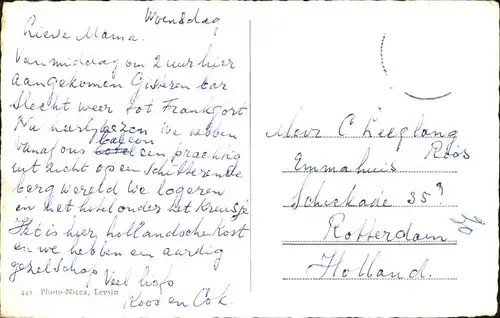 Woensdag
Lieve Mama.
Van middag om 2 uur hier
aangekomen Gisteren tar
slecht weer tot Frankfort
Nu We hebben
balcon
vanaf ons een prachtig
uit zicht op een Schitterende
berg wereld We logeren
in het hotel onder het Kruisje
Het is hier hollandsche Kost
en we hebben en aardig
gezelschap
Veel liefs
Koos en Cok.
442 Photo-Nicca, Leysin
Mevr C Leeflang
Roos
Emmahuis
Schiekade 35
Rotterdam
Holland.